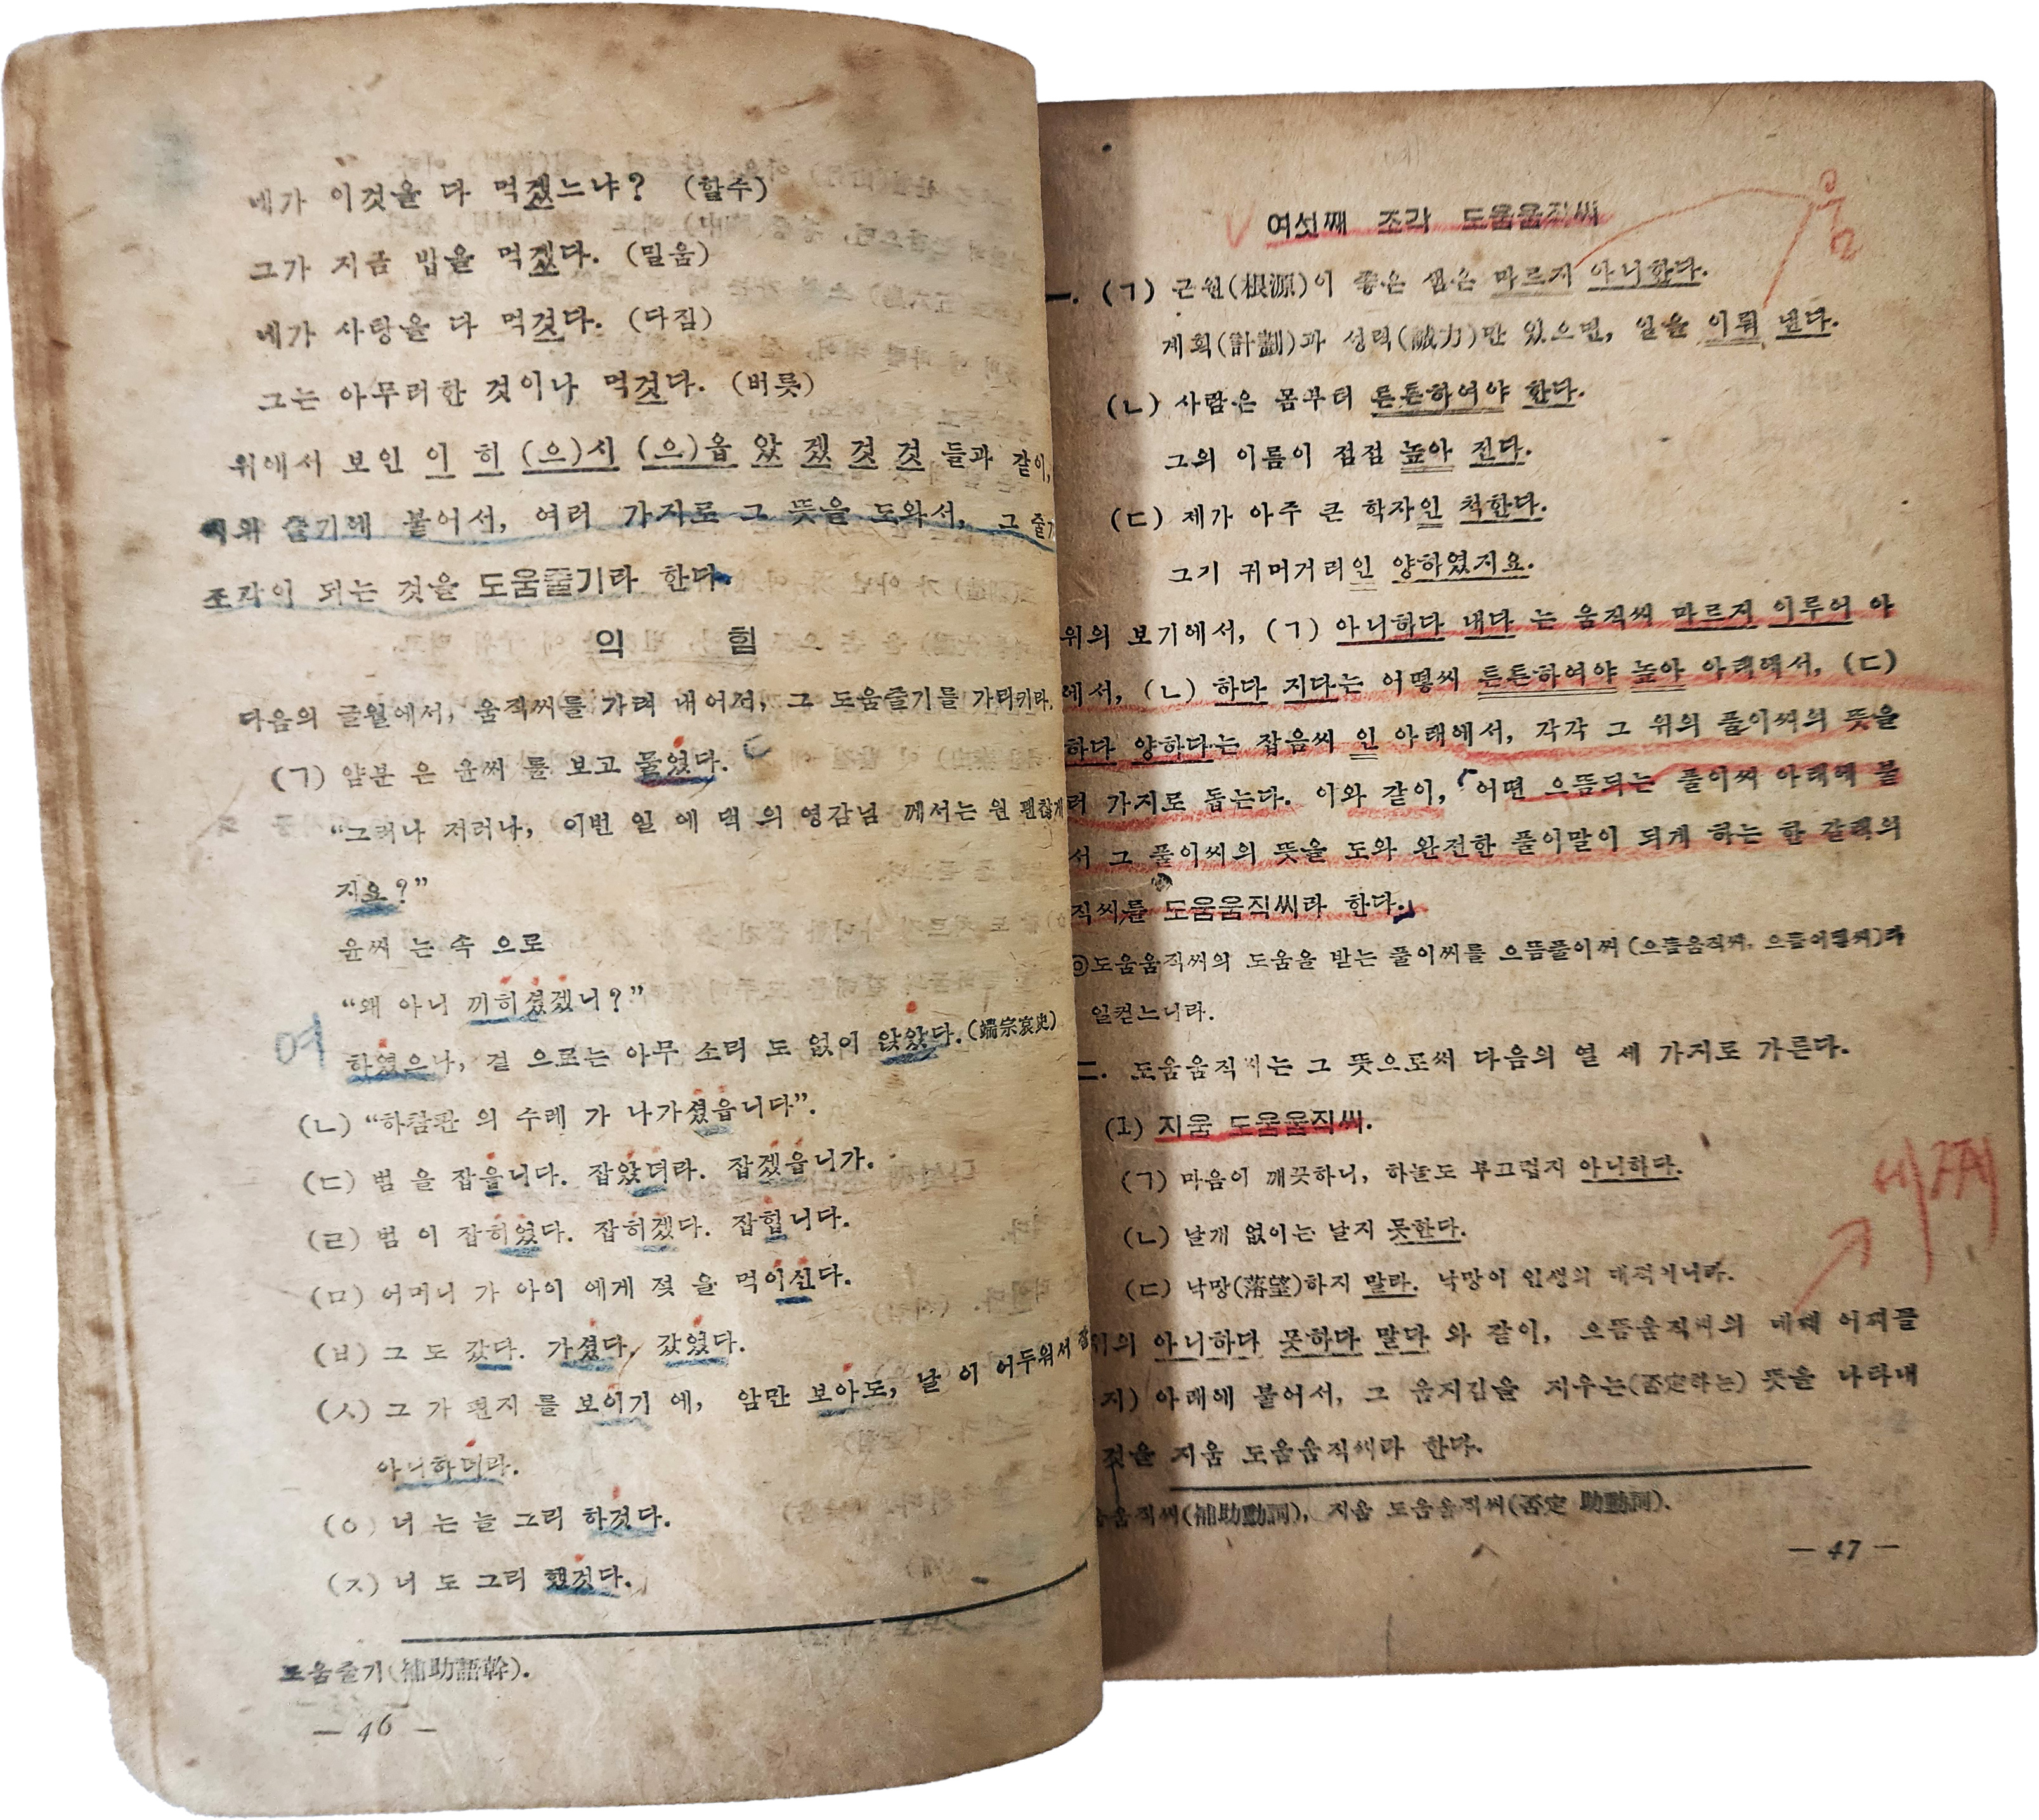 네가 이것을 다 먹겠느냐? (할수)
그가 지금 밥을 먹겠다. (밀움)
네가 사탕을 다 먹것다. (다짐)
그는 아무러한 것이나 먹것다. (버릇)
위에서 보인 이 히 (으)시 (으)옵 았 겠 것 것 들과 같이,
줄기에 붙어서, 여러 가지로 그 뜻을 도와서, 그 줄기
조각이 되는 것을 도움줄기라 한다.
익 힘
다음의 글월에서, 움직씨를 가려 내어서, 그 도움줄기를 가리키라.
(ㄱ) 얌분 은 윤씨 를 보고 물었다.
“그러나 저러나, 이번 일 에 댁 의 영감님 께서는 원 괜찮게
지요?”
윤씨 는 속 으로
“왜 아니 끼히셨겠니?”
여
하였으나, 겉 으로는 아무 소리 도 없이 앉았다. (端宗哀史)
(ㄴ) “하참판 의 수레 가 나가셨읍니다”.
(ㄷ) 범 을 잡읍니다. 잡았더라. 잡겠읍니가.
(ㄹ) 범 이 잡히었다. 잡히겠다. 잡힙니다.
(ㅁ) 어머니 가 아이 에게 젖 을 먹이신다.
(ㅂ) 그 도 갔다. 가셨다. 갔었다.
(ㅅ) 그 가 편지 를 보이기 에, 암만 보아도, 날 이 어두워서
아니하더라.
(ㅇ) 너 는 늘 그리 하것다.
(ㅈ) 너 도 그리 했것다.
도움줄기(補助語幹).
— 46 —
여섯째 조각 도움움직씨
一. (ㄱ) 근원(根源)이 좋은 샘은 마르지 아니한다.
계획(計劃)과 성력(誠力)만 있으면, 일을 이뤄 낸다.
(ㄴ) 사람은 몸부터 튼튼하여야 한다.
그의 이름이 점점 높아 진다.
(ㄷ) 제가 아주 큰 학자인 척한다.
그기 귀머거리인 양하였지요.
위의 보기에서, (ㄱ) 아니하다 내다 는 움직씨 마르지 이루어 아
에서, (ㄴ) 하다 지다는 어떻씨 튼튼하여야 높아 아래에서, (ㄷ)
하다 양하다는 잡음씨 인 아래에서, 각각 그 위의 풀이씨의 뜻을
러 가지로 돕는다. 이와 같이, 어떤 으뜸되는 풀이씨 아래에 붙
서 그 풀이씨의 뜻을 도와 완전한 풀이말이 되게 하는 한 갈래의
직씨를 도움움직씨라 한다.
◎도움움직씨의 도움을 받는 풀이씨를 으뜸풀이씨 (으뜸움직씨, 으뜸어떻씨)라
일컫느니라.
二. 도움움직씨는 그 뜻으로써 다음의 열 세 가지로 가른다.
(1) 지움 도움움직씨.
(ㄱ) 마음이 깨끗하니, 하늘도 부끄럽지 아니하다.
(ㄴ) 날개 없이는 날지 못한다.
(ㄷ) 낙망(落望)하지 말라. 낙망이 인생의 대적이니라.
위의 아니하다 못하다 말다 와 같이, 으뜸움직씨의 네째 어찌를
지) 아래에 붙어서, 그 움직김을 지우는(否定하는) 뜻을 나타내
것을 지움 도움움직씨라 한다.
움움직씨(補助動詞), 지움 도움움직씨(否定 助動詞).
— 47 —